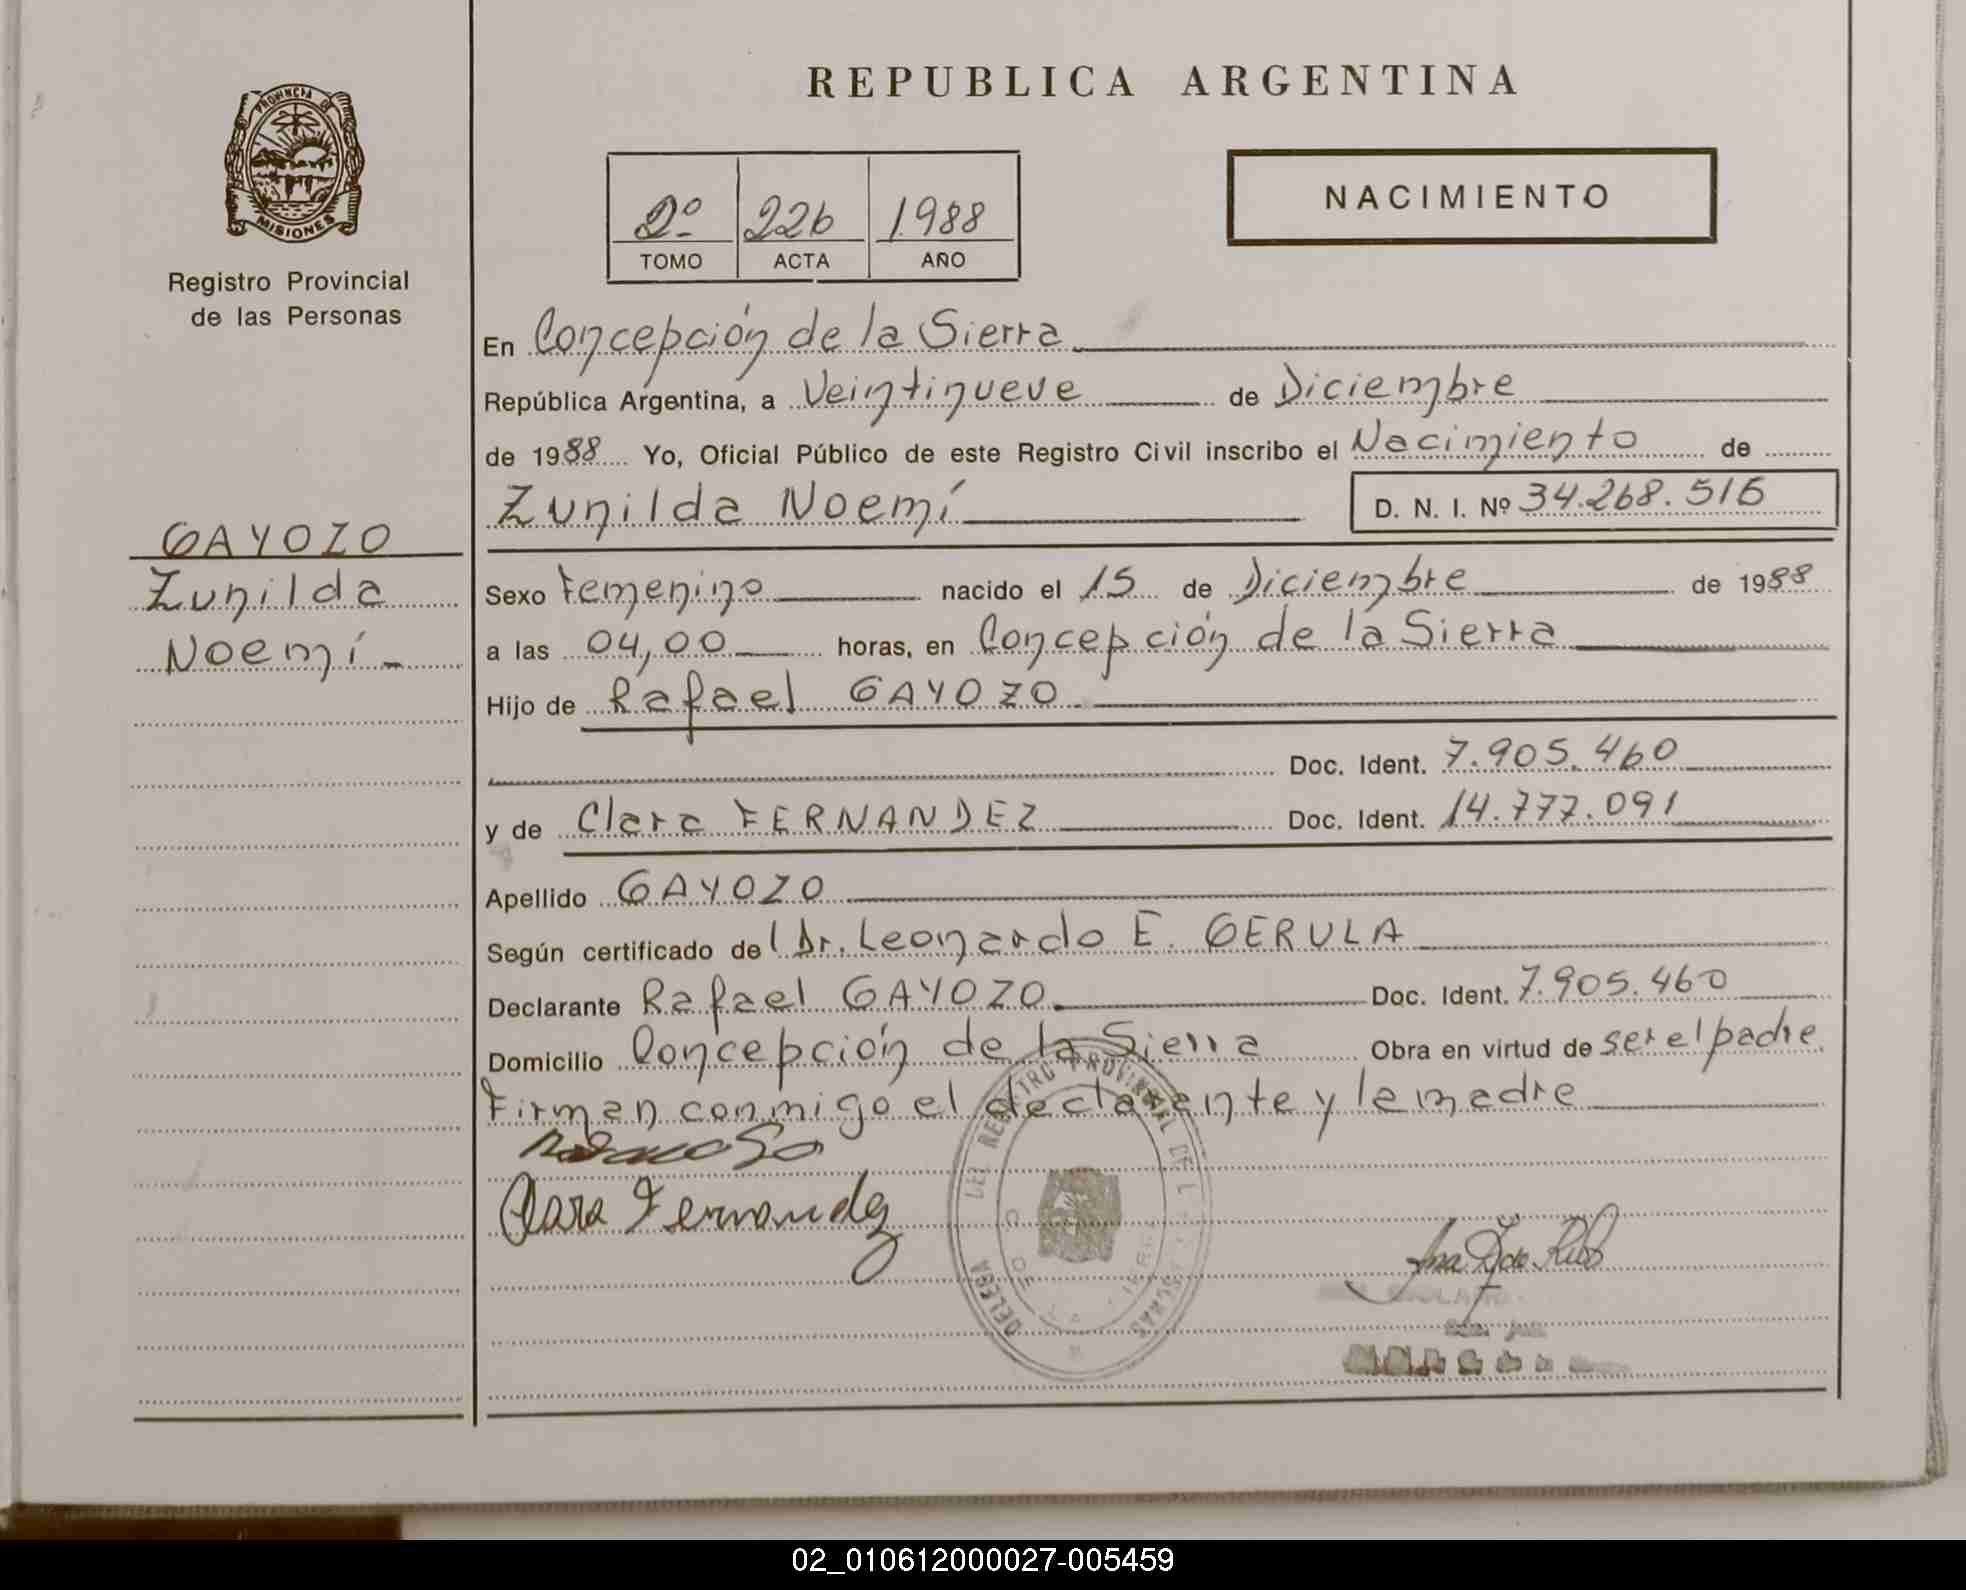 REPUBLICA ARGENTINA
PROVINCIA DE MISIONES
Registro Provincial
de las Personas
2º 226 1988
TOMO ACTA AÑO
NACIMIENTO
En Concepción de la Sierra
República Argentina, a Veintinueve de Diciembre
de 1988 Yo, Oficial Público de este Registro Civil inscribo el Nacimiento de
Zunilda Noemí D. N. I. Nº 34.268.516
GAYOZO
Zunilda
Noemí
Sexo Femenino nacido el 15 de Diciembre de 1988
a las 04,00 horas, en Concepción de la Sierra
Hijo de Rafael GAYOZO
Doc. Ident. 7.905.460
y de Clara FERNANDEZ Doc. Ident. 14.777.091
Apellido GAYOZO
Según certificado del Dr. Leonardo E. GERULA
Declarante Rafael GAYOZO Doc. Ident. 7.905.460
Domicilio Concepción de la Sierra Obra en virtud de ser el padre
Firman conmigo el declarante y la madre
Clara Fernandez
DEL REGISTRO PROVINCIAL DE L
02_010612000027-005459